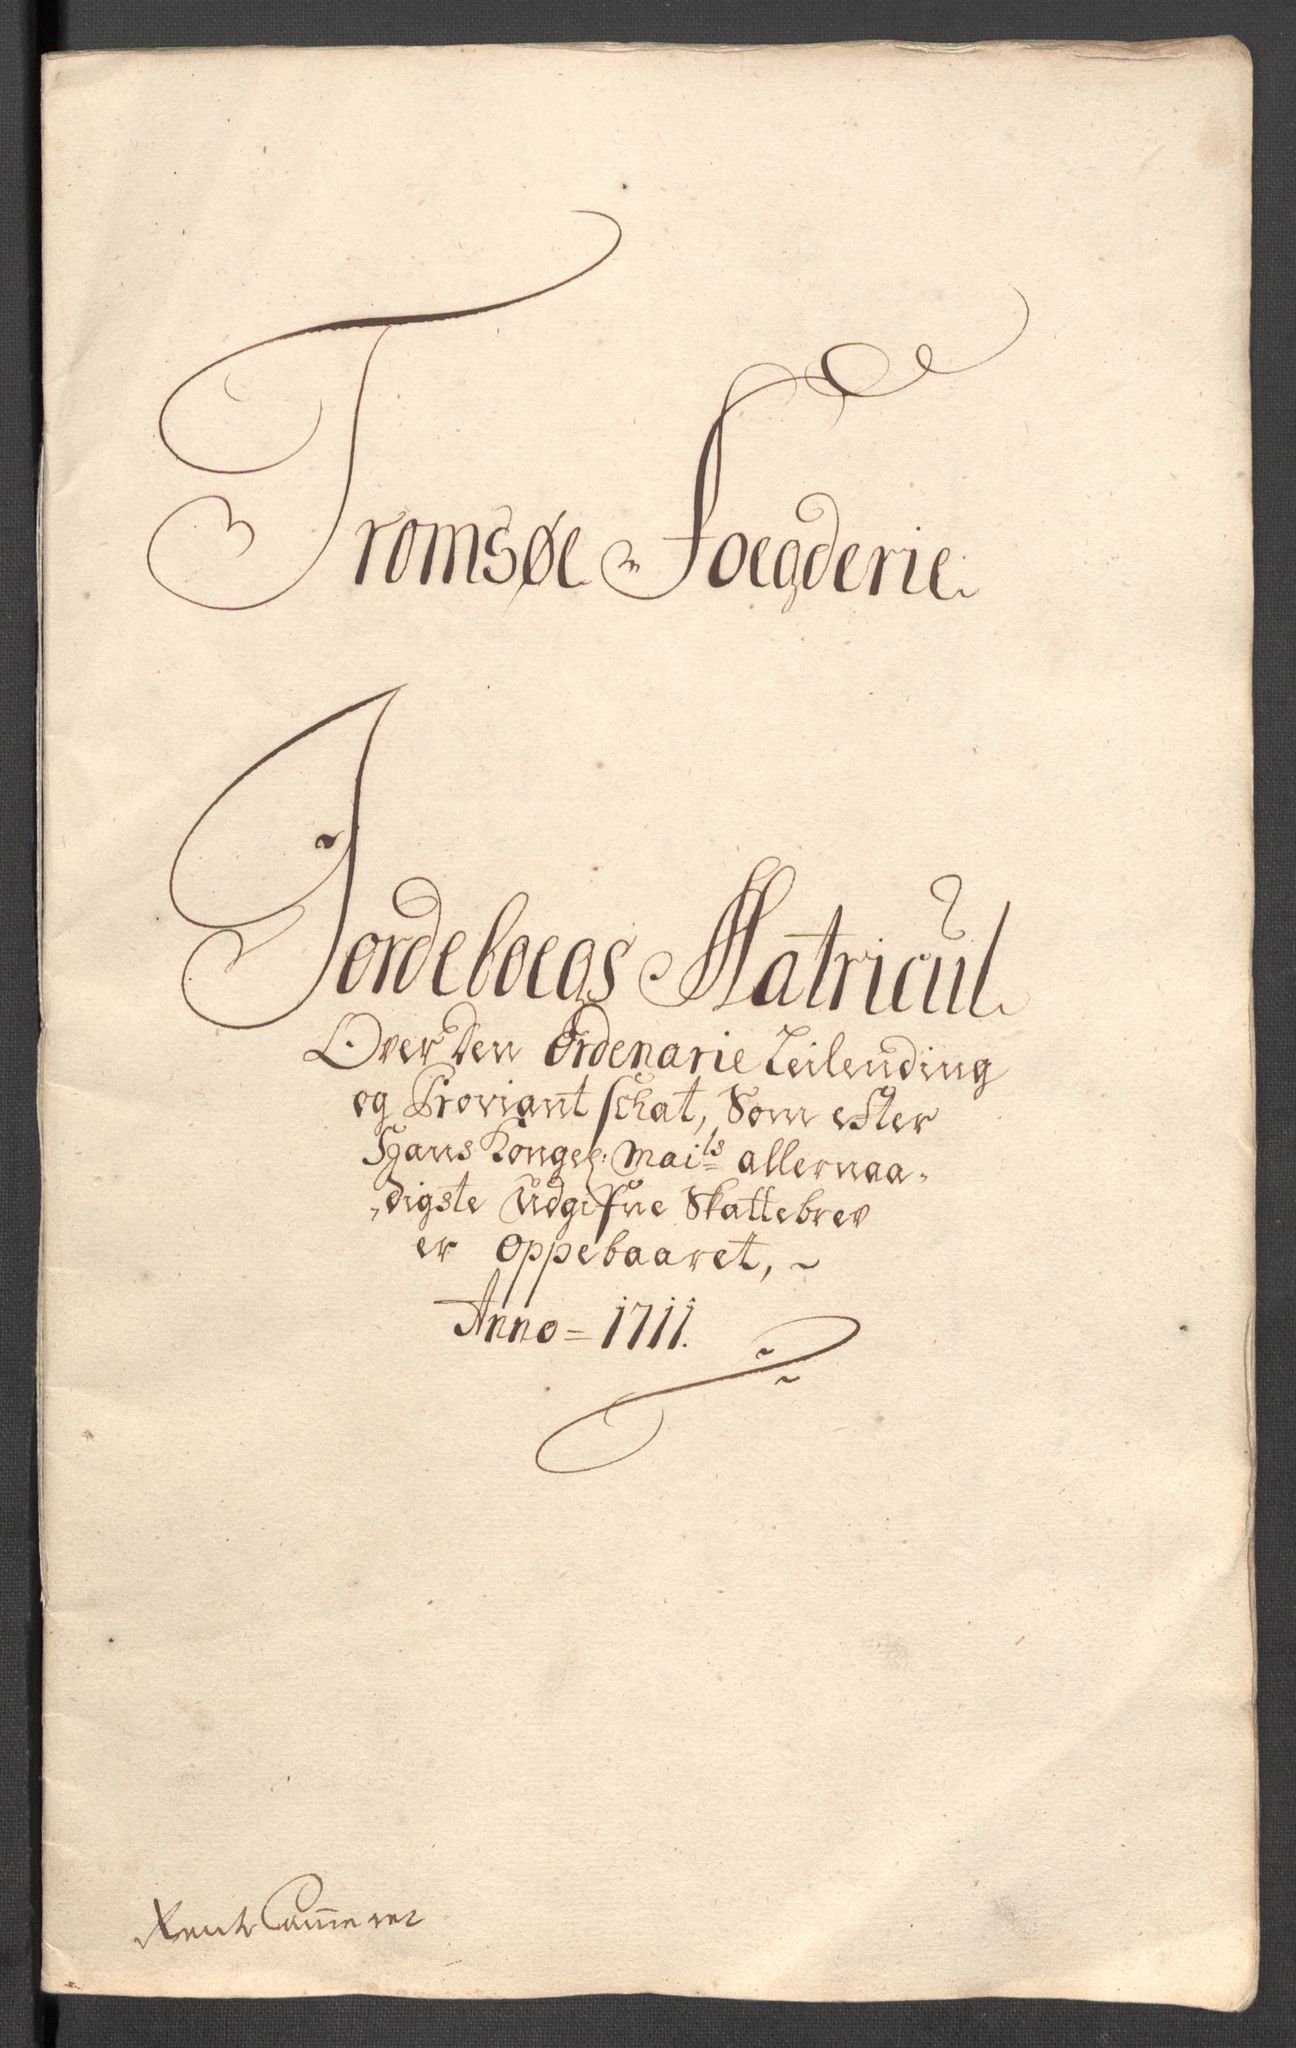 Tromsøe Foegderie
Jordeboegs Matricul
Over den Ordenarie Leilending
og Proviant schat, Som efter
Hans Kongel: Mai^ts allernaa-
digste Udgifne Skattebrev
er oppebaaret,
Anno = 1711.
Rente Cammeret